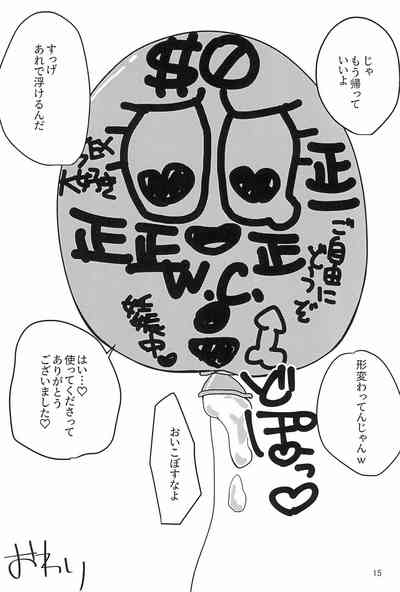 じゃ
もう帰って
いいよ
すっげ
あれで浮けるんだ
$0
大好き
正正正正
ご自由に
どうぞ
妊娠中♡
形変わってんじゃんw
はい…♡
使ってくださって
ありがとう
ございました♡
おいこぼすなよ
おわり
15